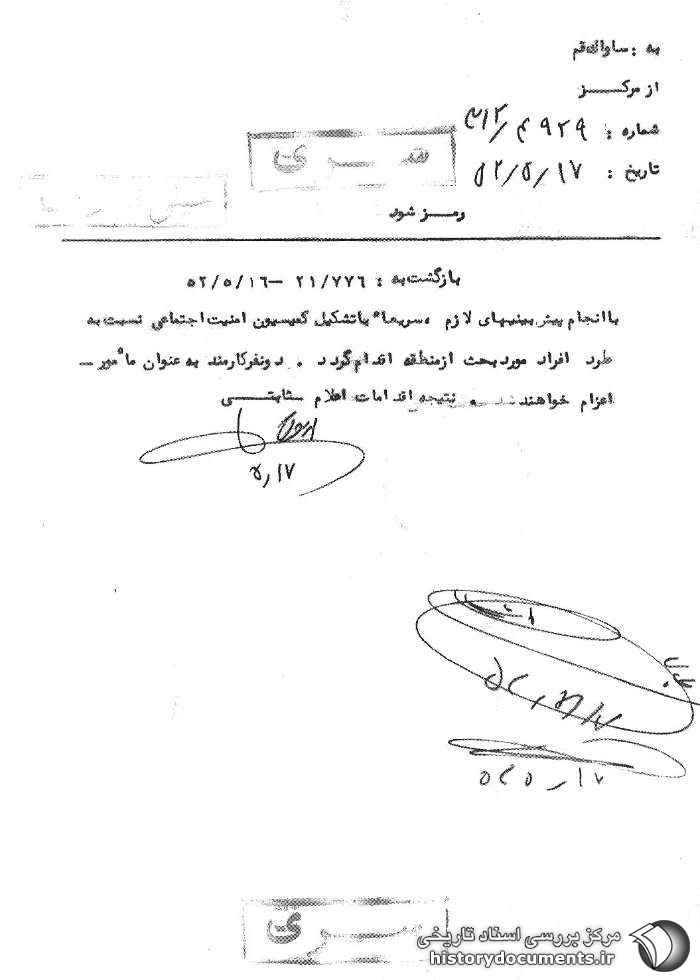 به : ساواک قم
از مرکـــــز
شماره : ۳۱۲/ ۴۹۲۹
تاریخ : ۵۲/۵/۱۷
ســـری
رمــز شود
بازگشت به : ۲۱/۷۷۶ – ۵۲/۵/۱۶
با انجام پیش بینیهای لازم ، سریعا" با تشکیل کمیسیون امنیت اجتماعی نسبت به
طرد افراد مورد بحث از منطقه اقدام گردد . دو نفر کارمند به عنوان مأمور –
اعزام خواهند شد . نتیجه اقدامات اعلام ثابتـــی
۵/۱۷
۵۲/۵/۱۷
۵۲۵/۱۷
ســـری
مرکز بررسی اسناد تاریخی
historydocuments.ir